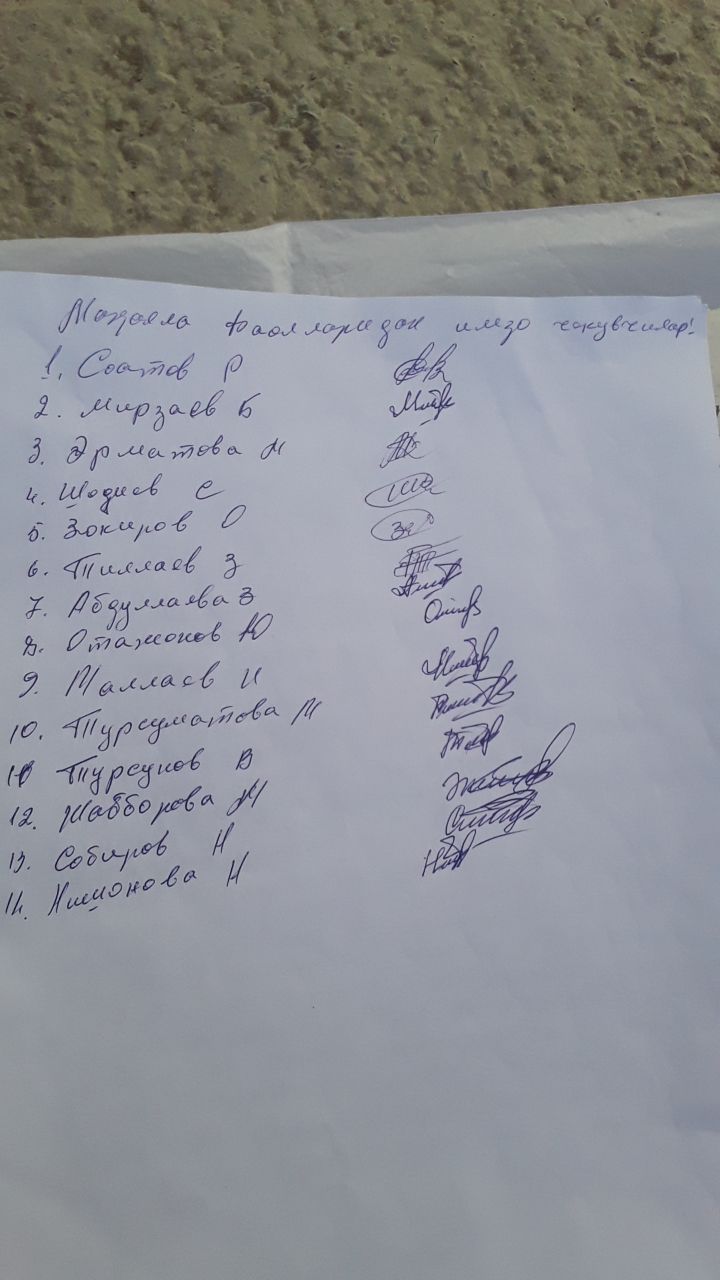 Махалла фаолларидан имзо чекувчилар!
1. Соатов Р
2. Мирзаев Б
3. Эрматова М
4. Шодиев С
5. Зокиров О
6. Тиллаев З
7. Абдуллаева З
8. Отажонов Ю
9. Маллаев И
10. Турсуматова М
11 Турсунов В
12. Жабборова М
13. Собиров Н
14. Нишонова Н